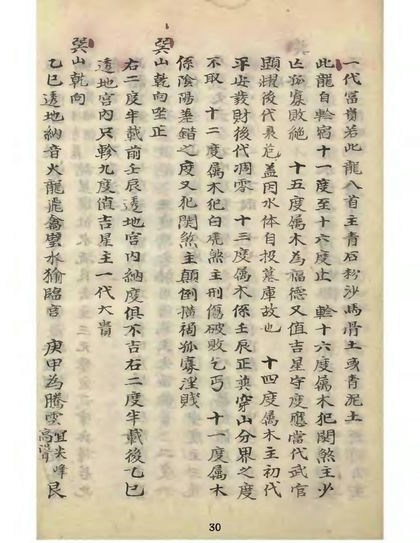 一代富貴若此龍入首主青石粉沙馬骨土或青泥土
此龍自軫宿十一度至十六度止 軫十六度属木犯関煞主少
亡孤寡敗絶 十五度属木為福德又值吉星守度應當代武官
顕耀後代衰危蓋因水体自投墓庫故也 十四度属木主初代
平安發財後代凋零 十三度属木係壬辰正與穿山分界之度
不取 十二度属木犯白虎煞主刑傷破敗乞丐 十一度属木
係陰陽差錯之度又犯関煞主顛倒横禍孤寡淫賤
癸山乾向坐正
右二度半載前壬辰透地宮内納度俱不吉右二度半載後乙巳
透地宮内只軫九度值吉星主一代大貴
癸山乾向
乙巳透地納音火龍飛禽璧水㺄臨官 庚甲為騰雲宜尖峰高聳艮
30